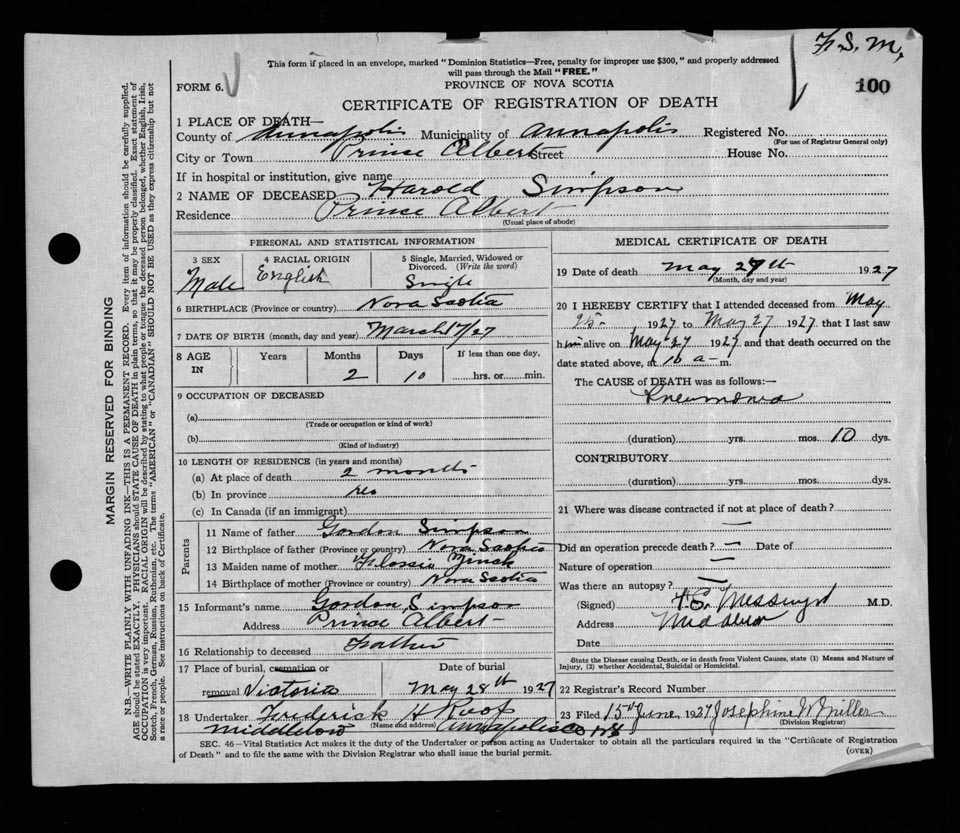 F. S. M,
This form if placed in an envelope, marked "Dominion Statistics—Free, penalty for improper use $300," and properly addressed
will pass through the Mail "FREE."
FORM 6.
PROVINCE OF NOVA SCOTIA
100
CERTIFICATE OF REGISTRATION OF DEATH
1 PLACE OF DEATH—
County of Annapolis Municipality of Annapolis Registered No.
(For use of Registrar General only)
City or Town Prince Albert Street House No.
If in hospital or institution, give name
2 NAME OF DECEASED Harold Simpson
Residence Prince Albert
(Usual place of abode)
PERSONAL AND STATISTICAL INFORMATION
3 SEX 4 RACIAL ORIGIN 5 Single, Married, Widowed or
Divorced. (Write the word)
Male English Single
6 BIRTHPLACE (Province or country) Nova Scotia
7 DATE OF BIRTH (month, day and year) March 17/27
8 AGE Years Months Days If less than one day,
IN 2 10 hrs. or min.
9 OCCUPATION OF DECEASED
(a)
(Trade or occupation or kind of work)
(b)
(Kind of industry)
10 LENGTH OF RESIDENCE (in years and months)
(a) At place of death 2 months
(b) In province
(c) In Canada (if an immigrant)
Parents
11 Name of father Gordon Simpson
12 Birthplace of father (Province or country) Nova Scotia
13 Maiden name of mother Flossie Zinck
14 Birthplace of mother (Province or country) Nova Scotia
15 Informant's name Gordon Simpson
Address Prince Albert
16 Relationship to deceased Father
17 Place of burial, cremation or Date of burial
removal Victoria May 28th 1927
18 Undertaker Frederick H Roop
(Name and address)
Middleton Annapolis Co NS
MEDICAL CERTIFICATE OF DEATH
19 Date of death May 27th 1927
(Month, day and year)
20 I HEREBY CERTIFY that I attended deceased from May
25 1927 to May 27 1927 that I last saw
him alive on May 27 1927 and that death occurred on the
date stated above, at 10 a m.
The CAUSE of DEATH was as follows:—
Pneumonia
(duration) yrs. mos. 10 dys.
CONTRIBUTORY
(duration) yrs. mos. dys.
21 Where was disease contracted if not at place of death?
—
Did an operation precede death? — Date of
Nature of operation —
Was there an autopsy? —
(Signed) Messenger M.D.
Address Middleton
Date
State the Disease causing Death, or in death from Violent Causes, state (1) Means and Nature of
Injury, (2) whether Accidental, Suicidal or Homicidal.
22 Registrar's Record Number
23 Filed 15th June 1927 Josephine W Miller
(Division Registrar)
SEC. 46—Vital Statistics Act makes it the duty of the Undertaker or person acting as Undertaker to obtain all the particulars required in the "Certificate of Registration
of Death" and to file the same with the Division Registrar who shall issue the burial permit.
(OVER)
MARGIN RESERVED FOR BINDING
N.B.—WRITE PLAINLY WITH UNFADING INK—THIS IS A PERMANENT RECORD. Every item of information should be carefully supplied.
AGE should be stated EXACTLY. PHYSICIANS should STATE CAUSE OF DEATH in plain terms, so that it may be properly classified. Exact statement of
OCCUPATION is very important. RACIAL ORIGIN will be described by stating to what people or tongue the deceased person belonged, whether English, Irish,
Scotch, French, German, Russian, Ruthenian, etc. The terms "AMERICAN" or "CANADIAN" SHOULD NOT BE USED as they express citizenship but not
a race or people. See instructions on back of Certificate.